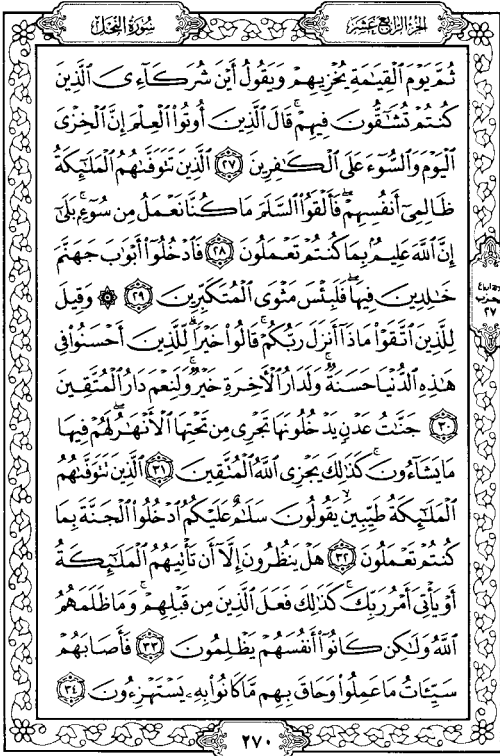 سُورَةُ النَّحْلِ
الجُزْءُ الرَّابِعَ عَشَرَ
ثُمَّ يَوْمَ الْقِيَٰمَةِ يُخْزِيهِمْ وَيَقُولُ أَيْنَ شُرَكَآءِىَ الَّذِينَ
كُنتُمْ تُشَٰٓقُّونَ فِيهِمْ ۚ قَالَ الَّذِينَ أُوتُوا۟ الْعِلْمَ إِنَّ الْخِزْىَ
الْيَوْمَ وَالسُّوٓءَ عَلَى الْكَٰفِرِينَ ٢٧ الَّذِينَ تَتَوَفَّىٰهُمُ الْمَلَٰٓئِكَةُ
ظَالِمِىٓ أَنفُسِهِمْ ۖ فَأَلْقَوُا۟ السَّلَمَ مَا كُنَّا نَعْمَلُ مِن سُوٓءٍۭ ۚ بَلَىٰٓ
إِنَّ اللَّهَ عَلِيمٌۢ بِمَا كُنتُمْ تَعْمَلُونَ ٢٨ فَادْخُلُوٓا۟ أَبْوَٰبَ جَهَنَّمَ
خَٰلِدِينَ فِيهَا ۖ فَلَبِئْسَ مَثْوَى الْمُتَكَبِّرِينَ ٢٩ ۞ وَقِيلَ
لِلَّذِينَ اتَّقَوْا۟ مَاذَآ أَنزَلَ رَبُّكُمْ ۚ قَالُوا۟ خَيْرًا ۗ لِّلَّذِينَ أَحْسَنُوا۟ فِى
هَٰذِهِ الدُّنْيَا حَسَنَةٌ ۚ وَلَدَارُ الْءَاخِرَةِ خَيْرٌ ۚ وَلَنِعْمَ دَارُ الْمُتَّقِينَ
٣٠ جَنَّٰتُ عَدْنٍ يَدْخُلُونَهَا تَجْرِى مِن تَحْتِهَا الْأَنْهَٰرُ ۖ لَهُمْ فِيهَا
مَا يَشَآءُونَ ۚ كَذَٰلِكَ يَجْزِى اللَّهُ الْمُتَّقِينَ ٣١ الَّذِينَ تَتَوَفَّىٰهُمُ
الْمَلَٰٓئِكَةُ طَيِّبِينَ ۙ يَقُولُونَ سَلَٰمٌ عَلَيْكُمُ ادْخُلُوا۟ الْجَنَّةَ بِمَا
كُنتُمْ تَعْمَلُونَ ٣٢ هَلْ يَنظُرُونَ إِلَّآ أَن تَأْتِيَهُمُ الْمَلَٰٓئِكَةُ
أَوْ يَأْتِىَ أَمْرُ رَبِّكَ ۚ كَذَٰلِكَ فَعَلَ الَّذِينَ مِن قَبْلِهِمْ ۚ وَمَا ظَلَمَهُمُ
اللَّهُ وَلَٰكِن كَانُوٓا۟ أَنفُسَهُمْ يَظْلِمُونَ ٣٣ فَأَصَابَهُمْ
سَيِّـَٔاتُ مَا عَمِلُوا۟ وَحَاقَ بِهِم مَّا كَانُوا۟ بِهِۦ يَسْتَهْزِءُونَ ٣٤
٢٧٠
٢٧